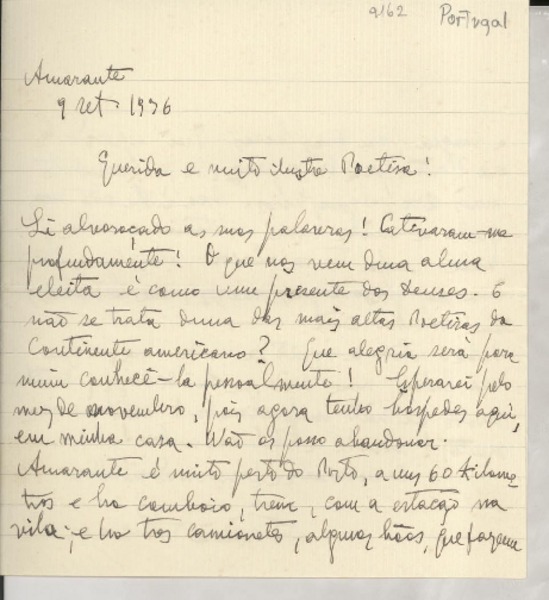 9162 Portugal
Amarante
9 set. 1936
Querida e muito ilustre Poetisa!
Li alvoroçado as suas palavras! Cativaram-me
profundamente! O que nos vem duma alma
eleita é como um presente dos deuses. E
não se trata duma das mais altas Poetisas do
Continente americano? Que alegria será para
mim conhecê-la pessoalmente! Esperarei pelo
mes de novembro, pois agora tenho hospedes aqui,
em minha casa. Não os posso abandonar.
Amarante é muito perto do Porto, a uns 60 kilome-
tros e ha comboio, trem, com a estação na
vila; e ha tres camionetes, algumas bôas, que fazem